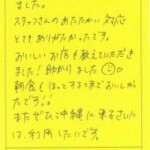 ました。
スタッフさんのあたたかい対応
とてもありがたかったです。
おいしいお店も教えていただき
ました！助かりました
朝食もほっとするほどおいしかっ
たです!!
またぜひ沖縄に来るさいに
は、利用したいです。